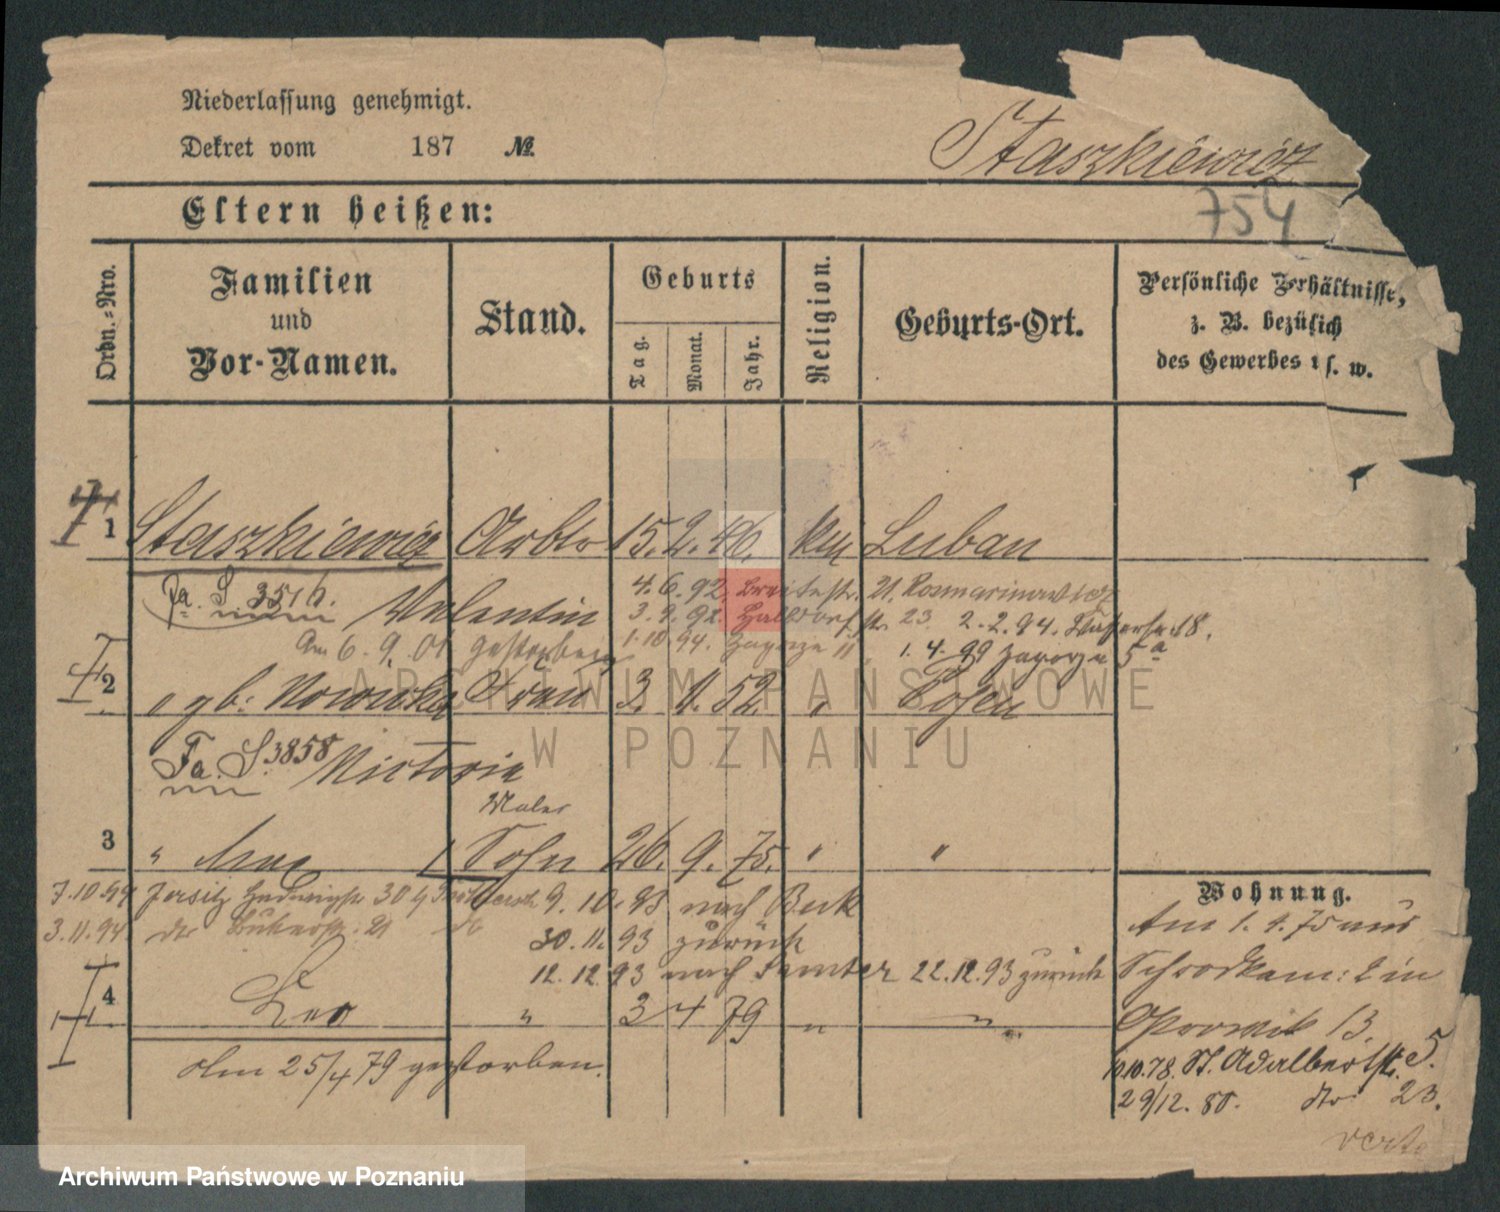 Niederlassung genehmigt.
Dekret vom 187 №
Staszkiewicz
Eltern heißen:
754
Ordn.-Nro.
Familien
und
Vor-Namen.
Stand.
Geburts
Tag.
Monat.
Jahr.
Religion.
Geburts-Ort.
Persönliche Verhältnisse,
z. B. bezüglich
des Gewerbes u. s. w.
1 Staszkiewicz Arbtr 15. 2. 46. Luban
Fa. S 3516.
Valentin
4. 6. 92. Breitestr. 21. Rosmarinowicz
3. 9. 92. Halbdorfstr. 23 2. 2. 94. 18.
Am 6. 9. 01 gestorben
1. 10. 94. Zagorze 11 1. 4. 99 Zagorze 5a
2 " gb: Nowicka Frau 3. 1. 52. " Posen
Fa. S. 3858 Victoria
Maler
3 " Sohn 26. 9. 75. " "
Wohnung.
7. 10. 94 Jersitz Hedwigstr. 30 9. 10. 93 nach Buk
Am 1. 4. 75 aus
3. 11. 94. 21 do
30. 11. 93 zurück
12. 12. 93 nach Samter 22. 12. 93 zurück
Schrodka in
4 Leo " 3 4 79 " "
13.
Am 25/4 79 gestorben.
10.10.78. St. Adalbertstr. 5.
29/12. 80. dto 23.
verte
ARCHIWUM PAŃSTWOWE
W POZNANIU
Archiwum Państwowe w Poznaniu